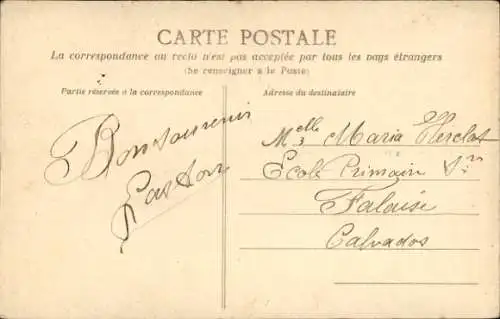 CARTE POSTALE
La correspondance au recto n'est pas acceptée par tous les pays étrangers
(Se renseigner à la Poste)
Partie réservée à la correspondance
Adresse du destinataire
Bon souvenir
Gaston
Melle Maria
Ecole Primain
Falaise
Calvados